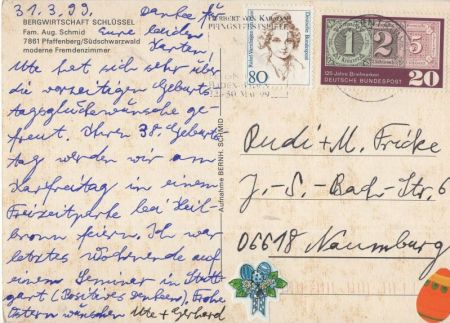 31.3.99.
Danke für
BERGWIRTSCHAFT SCHLÜSSEL
Fam. Aug. Schmid
7861 Pfaffenberg/Südschwarzwald
moderne Fremdenzimmer
Eure beiden
Karten!
Ute hat sich sehr über
die vorzeitigen Geburts-
tagsglückwünsche ge-
freut. Ihren 38. Geburts-
tag werden wir am
Karfreitag in einem
Freizeitparke bei Heil-
bronn feiern. Ich war
letztes Wochenende auf
einem Seminar in Stutt-
gart (Positives Denken). Frohe
Ostern wünschen Ute + Gerhard
Aufnahme BERNH. SCHMID
HERBERT VON KARAJAN
PFINGSTFESTSPIELE
80
Deutsche Bundespost
1 2 5
125 Jahre Briefmarken
DEUTSCHE BUNDESPOST
20
Rudi + M. Fricke
J.-S.-Bach-Str. 6
06618 Naumburg